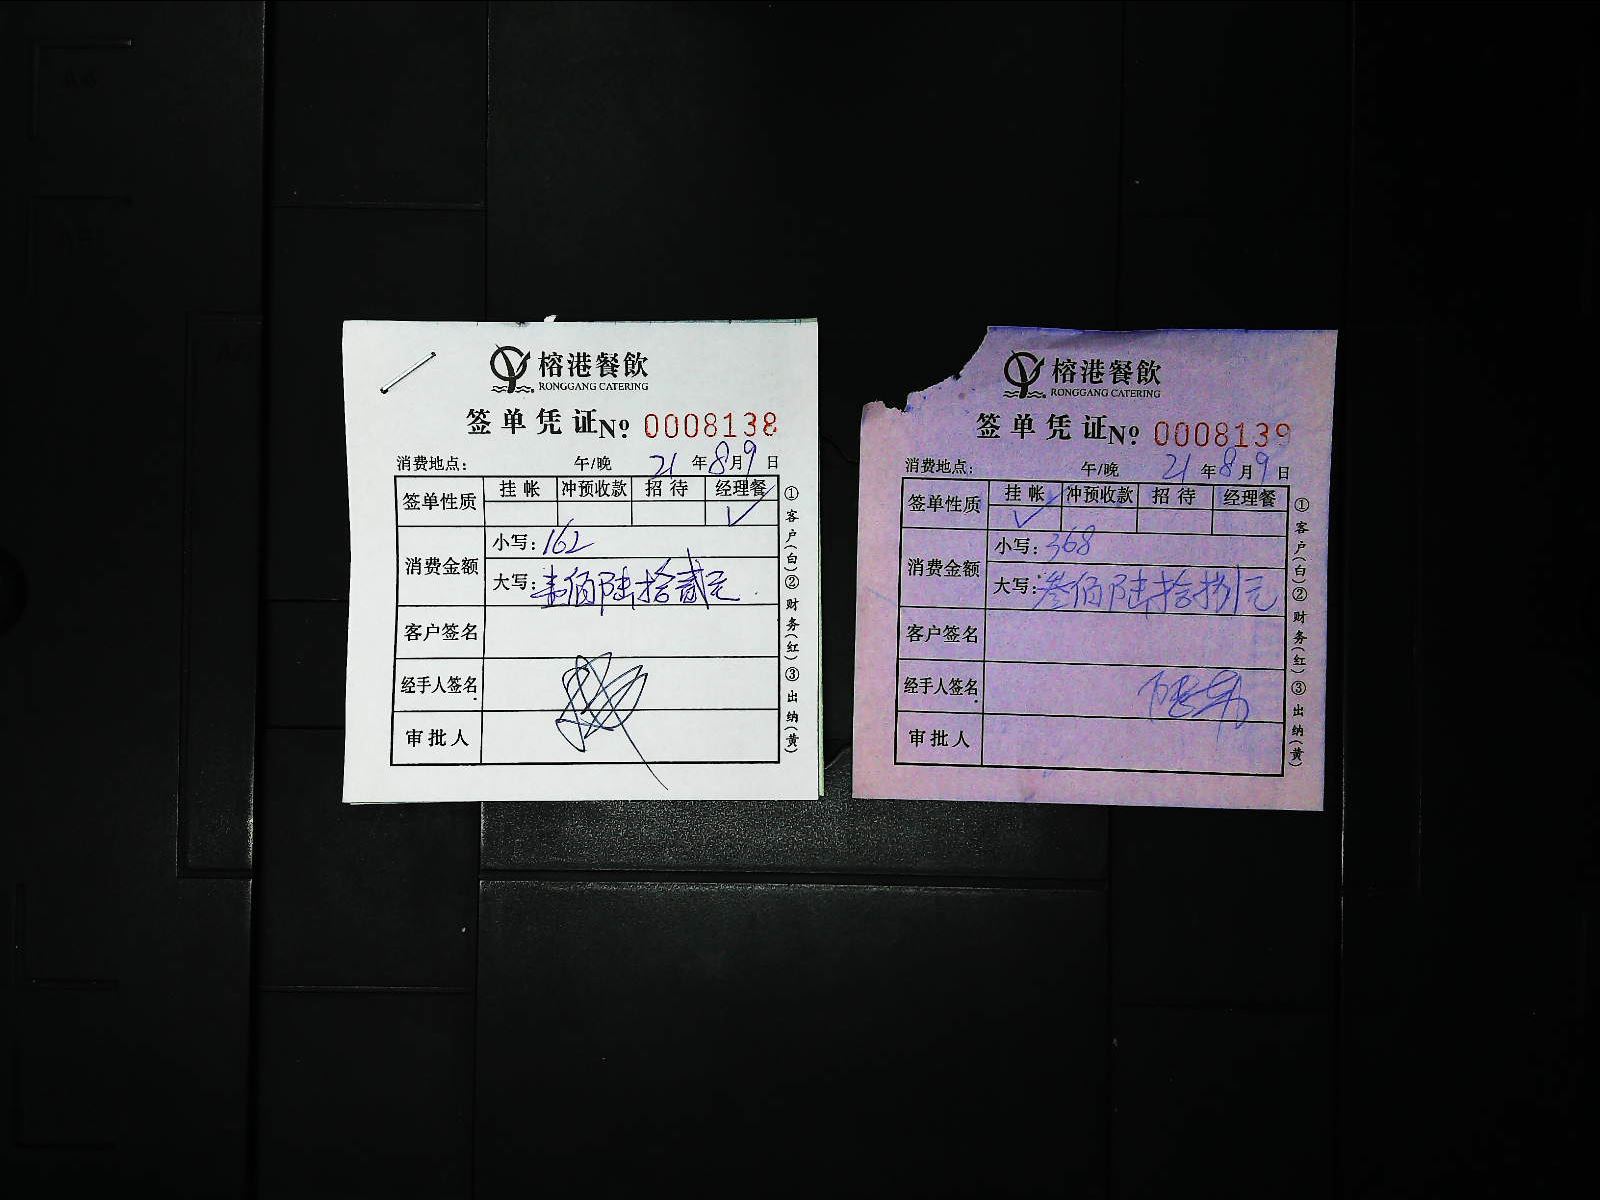 榕港餐飲
RONGGANG CATERING
签单凭证№ 0008138
消费地点： 午/晚 21年8月9日
签单性质 挂帐 冲预收款 招待 经理餐
✓
消费金额 小写：162
大写：壹佰陆拾贰元
客户签名
经手人签名
审批人
①客户(白)②财务(红)③出纳(黄)
榕港餐飲
RONGGANG CATERING
签单凭证№ 0008139
消费地点： 午/晚 21年8月9日
签单性质 挂帐 冲预收款 招待 经理餐
✓
消费金额 小写：368
大写：叁佰陆拾捌元
客户签名
经手人签名
审批人
①客户(白)②财务(红)③出纳(黄)